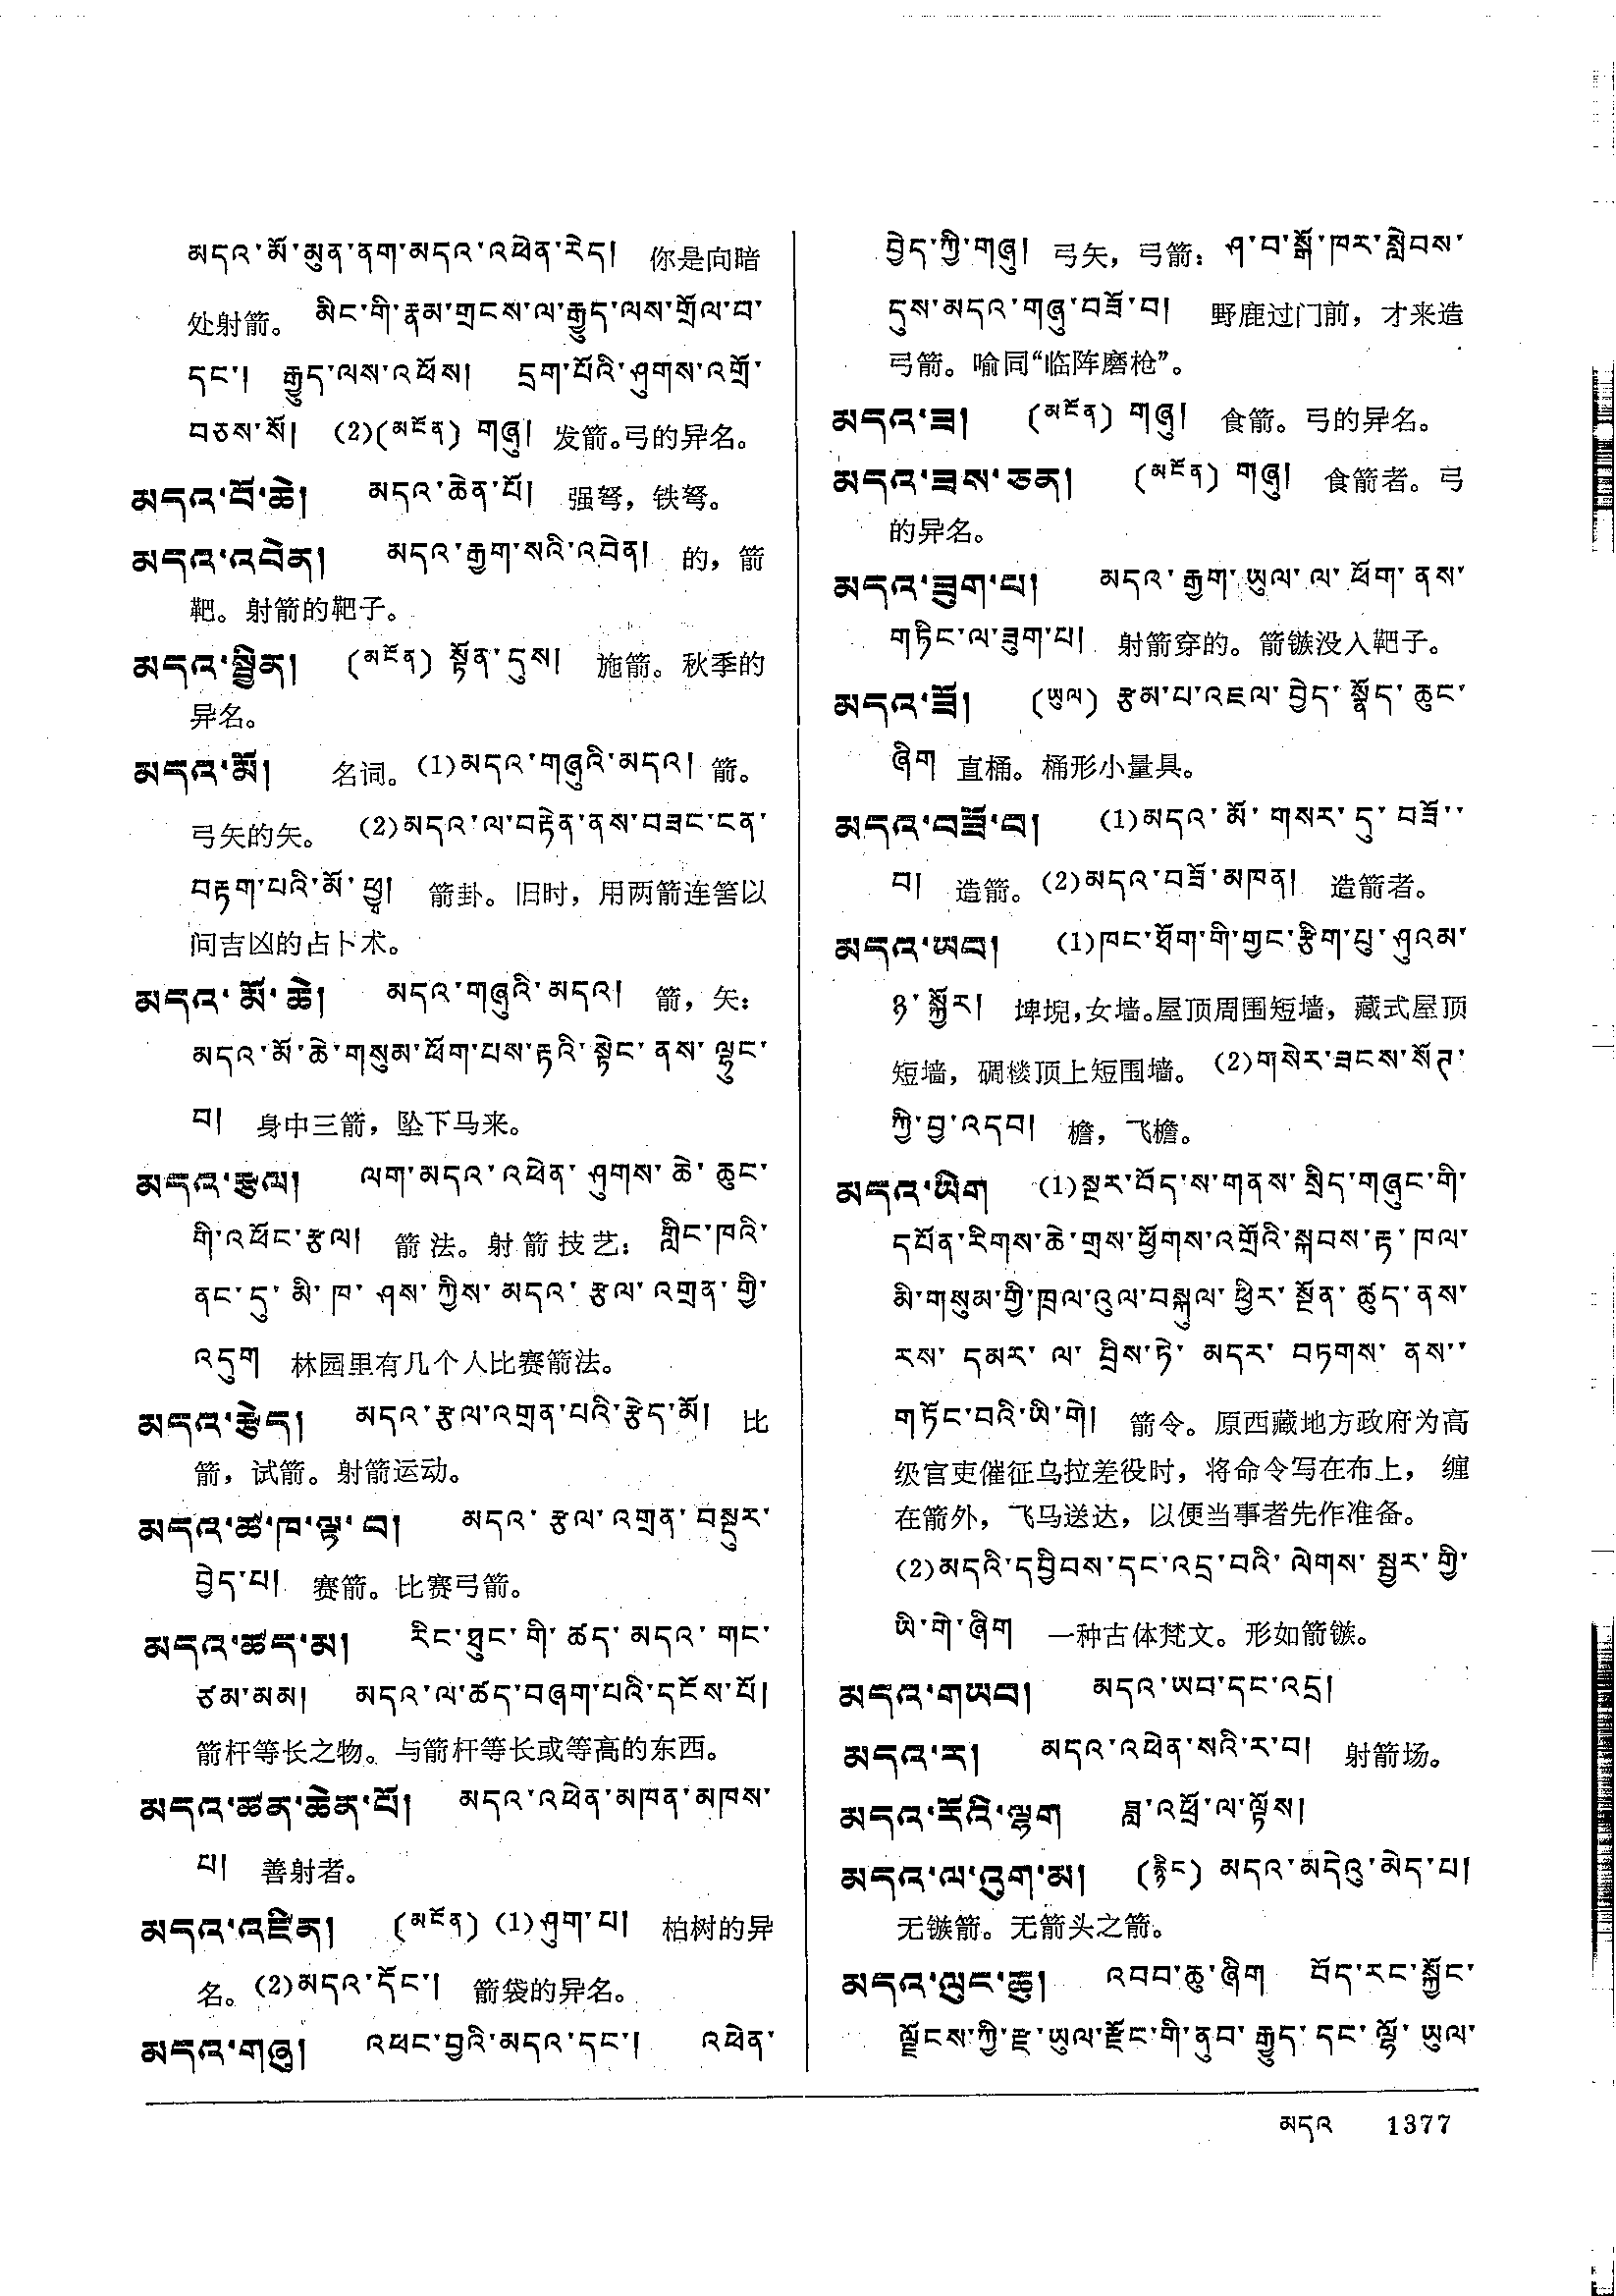 མདའ་མོ་མུན་ནག་མདའ་འཕེན་རེད། 你是向暗
处射箭。 མིང་གི་རྣམ་གྲངས་ལ་རྒྱུད་ལས་གྲོལ་བ་
དང་། རྒྱུད་ལས་འཕོས། དྲག་པོའི་ཤུགས་འགྲོ་
བཅས་སོ། (2)(མངོན) གཞུ། 发箭。弓的异名。
མདའ་བོ་ཆེ། མདའ་ཆེན་པོ། 强弩，铁弩。
མདའ་འབེན། མདའ་རྒྱག་སའི་འབེན། 的，箭
靶。射箭的靶子。
མདའ་སྦྱིན། (མངོན) སྟོན་དུས། 施箭。秋季的
异名。
མདའ་མོ། 名词。(1)མདའ་གཞུའི་མདའ། 箭。
弓矢的矢。 (2)མདའ་ལ་བརྟེན་ནས་བཟང་ངན་
བརྟག་པའི་མོ་ཕྱྭ། 箭卦。旧时，用两箭连筶以
问吉凶的占卜术。
མདའ་མོ་ཆེ། མདའ་གཞུའི་མདའ། 箭，矢：
མདའ་མོ་ཆེ་གསུམ་ཕོག་པས་རྟའི་སྟེང་ནས་ལྷུང་
བ། 身中三箭，坠下马来。
མདའ་རྩལ། ལག་མདའ་འཕེན་ཤུགས་ཆེ་ཆུང་
གི་འཕོང་རྩལ། 箭法。射箭技艺： གླིང་ཁའི་
ནང་དུ་མི་ཁ་ཤས་ཀྱིས་མདའ་རྩལ་འགྲན་གྱི་
འདུག 林园里有几个人比赛箭法。
མདའ་རྩེད། མདའ་རྩལ་འགྲན་པའི་རྩེད་མོ། 比
箭，试箭。射箭运动。
མདའ་ཚ་ཁ་ལྟ་བ། མདའ་རྩལ་འགྲན་བསྡུར་
བྱེད་པ། 赛箭。比赛弓箭。
མདའ་ཚད་མ། རིང་ཐུང་གི་ཚད་མདའ་གང་
ཙམ་མམ། མདའ་ལ་ཚད་བཞག་པའི་དངོས་པོ།
箭杆等长之物。与箭杆等长或等高的东西。
མདའ་ཚན་ཆེན་པོ། མདའ་འཕེན་མཁན་མཁས་
པ། 善射者。
མདའ་འཛིན། (མངོན) (1)ཤུག་པ། 柏树的异
名。(2)མདའ་དོང་། 箭袋的异名。
མདའ་གཞུ། འཕང་བྱའི་མདའ་དང་། འཕེན་
བྱེད་ཀྱི་གཞུ། 弓矢，弓箭： ཤ་བ་སྒོ་ཁར་སླེབས་
དུས་མདའ་གཞུ་བཟོ་བ། 野鹿过门前，才来造
弓箭。喻同“临阵磨枪”。
མདའ་ཟ། (མངོན) གཞུ། 食箭。弓的异名。
མདའ་ཟས་ཅན། (མངོན) གཞུ། 食箭者。弓
的异名。
མདའ་ཟུག་པ། མདའ་རྒྱག་ཡུལ་ལ་ཕོག་ནས་
གཏིང་ལ་ཟུག་པ། 射箭穿的。箭镞没入靶子。
མདའ་ཟོ། (ཡུལ) རྩམ་པ་འཇལ་བྱེད་སྣོད་ཆུང་
ཞིག 直桶。桶形小量具。
མདའ་བཟོ་བ། (1)མདའ་མོ་གསར་དུ་བཟོ་་
བ། 造箭。(2)མདའ་བཟོ་མཁན། 造箭者。
མདའ་ཡབ། (1)ཁང་ཐོག་གི་གྱང་རྩིག་པུ་ཤུའམ་
ཉེ་སྐོར། 埤堄，女墙。屋顶周围短墙，藏式屋顶
短墙，碉楼顶上短围墙。 (2)གསེར་ཟངས་སོཊ་
ཀྱི་བྱ་འདབ། 檐，飞檐。
མདའ་ཡིག (1)སྔར་བོད་ས་གནས་སྲིད་གཞུང་གི་
དཔོན་རིགས་ཆེ་གྲས་ཕྱོགས་འགྲོའི་སྐབས་རྟ་ཁལ་
མི་གསུམ་གྱི་ཁྲལ་འུལ་བསྐུལ་ཕྱིར་སྔོན་ཚུད་ནས་
རས་དམར་ལ་བྲིས་ཏེ་མདར་བཏགས་ནས་་
གཏོང་བའི་ཡི་གེ། 箭令。原西藏地方政府为高
级官吏催征乌拉差役时，将命令写在布上， 缠
在箭外，飞马送达，以便当事者先作准备。
(2)མདའི་དབྱིབས་དང་འདྲ་བའི་ལེགས་སྦྱར་གྱི་
ཡི་གེ་ཞིག 一种古体梵文。形如箭镞。
མདའ་གཡབ། མདའ་ཡབ་དང་འདྲ།
མདའ་ར། མདའ་འཕེན་སའི་ར་བ། 射箭场。
མདའ་རོའི་ལྷག ཟླ་འཕྲོ་ལ་ལྟོས།
མདའ་ལ་འུག་མ། (རྙིང) མདའ་མདེའུ་མེད་པ།
无镞箭。无箭头之箭。
མདའ་ལུང་ཆུ། འབབ་ཆུ་ཞིག བོད་རང་སྐྱོང་
ལྗོངས་ཀྱི་རྫ་ཡུལ་རྫོང་གི་ནུབ་རྒྱུད་དང་ལྷོ་ཡུལ་
མདའ 1377